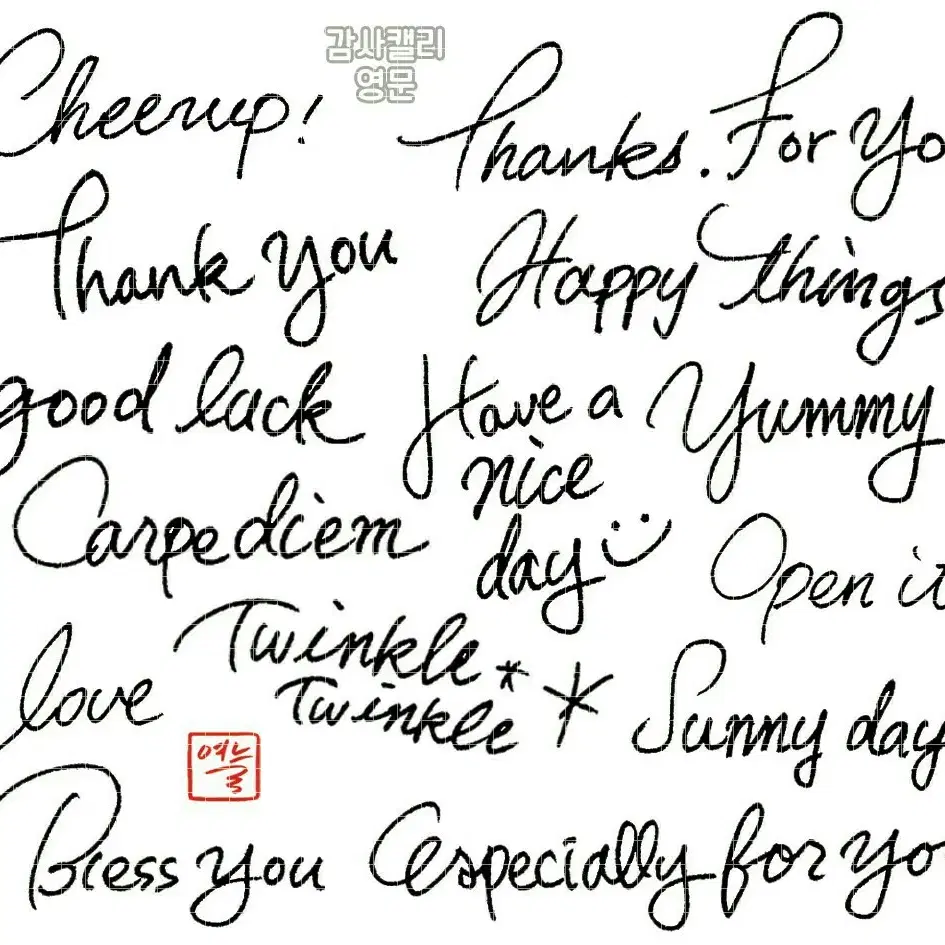 감사캘리
영문
Cheerup!
Thanks. For Yo
Thank you
Happy things
good luck
Have a
nice
day
Yummy
Carpediem
Open it
love
Twinkle
Twinkle
Sunny day
여늘
Bless you
especially for yo